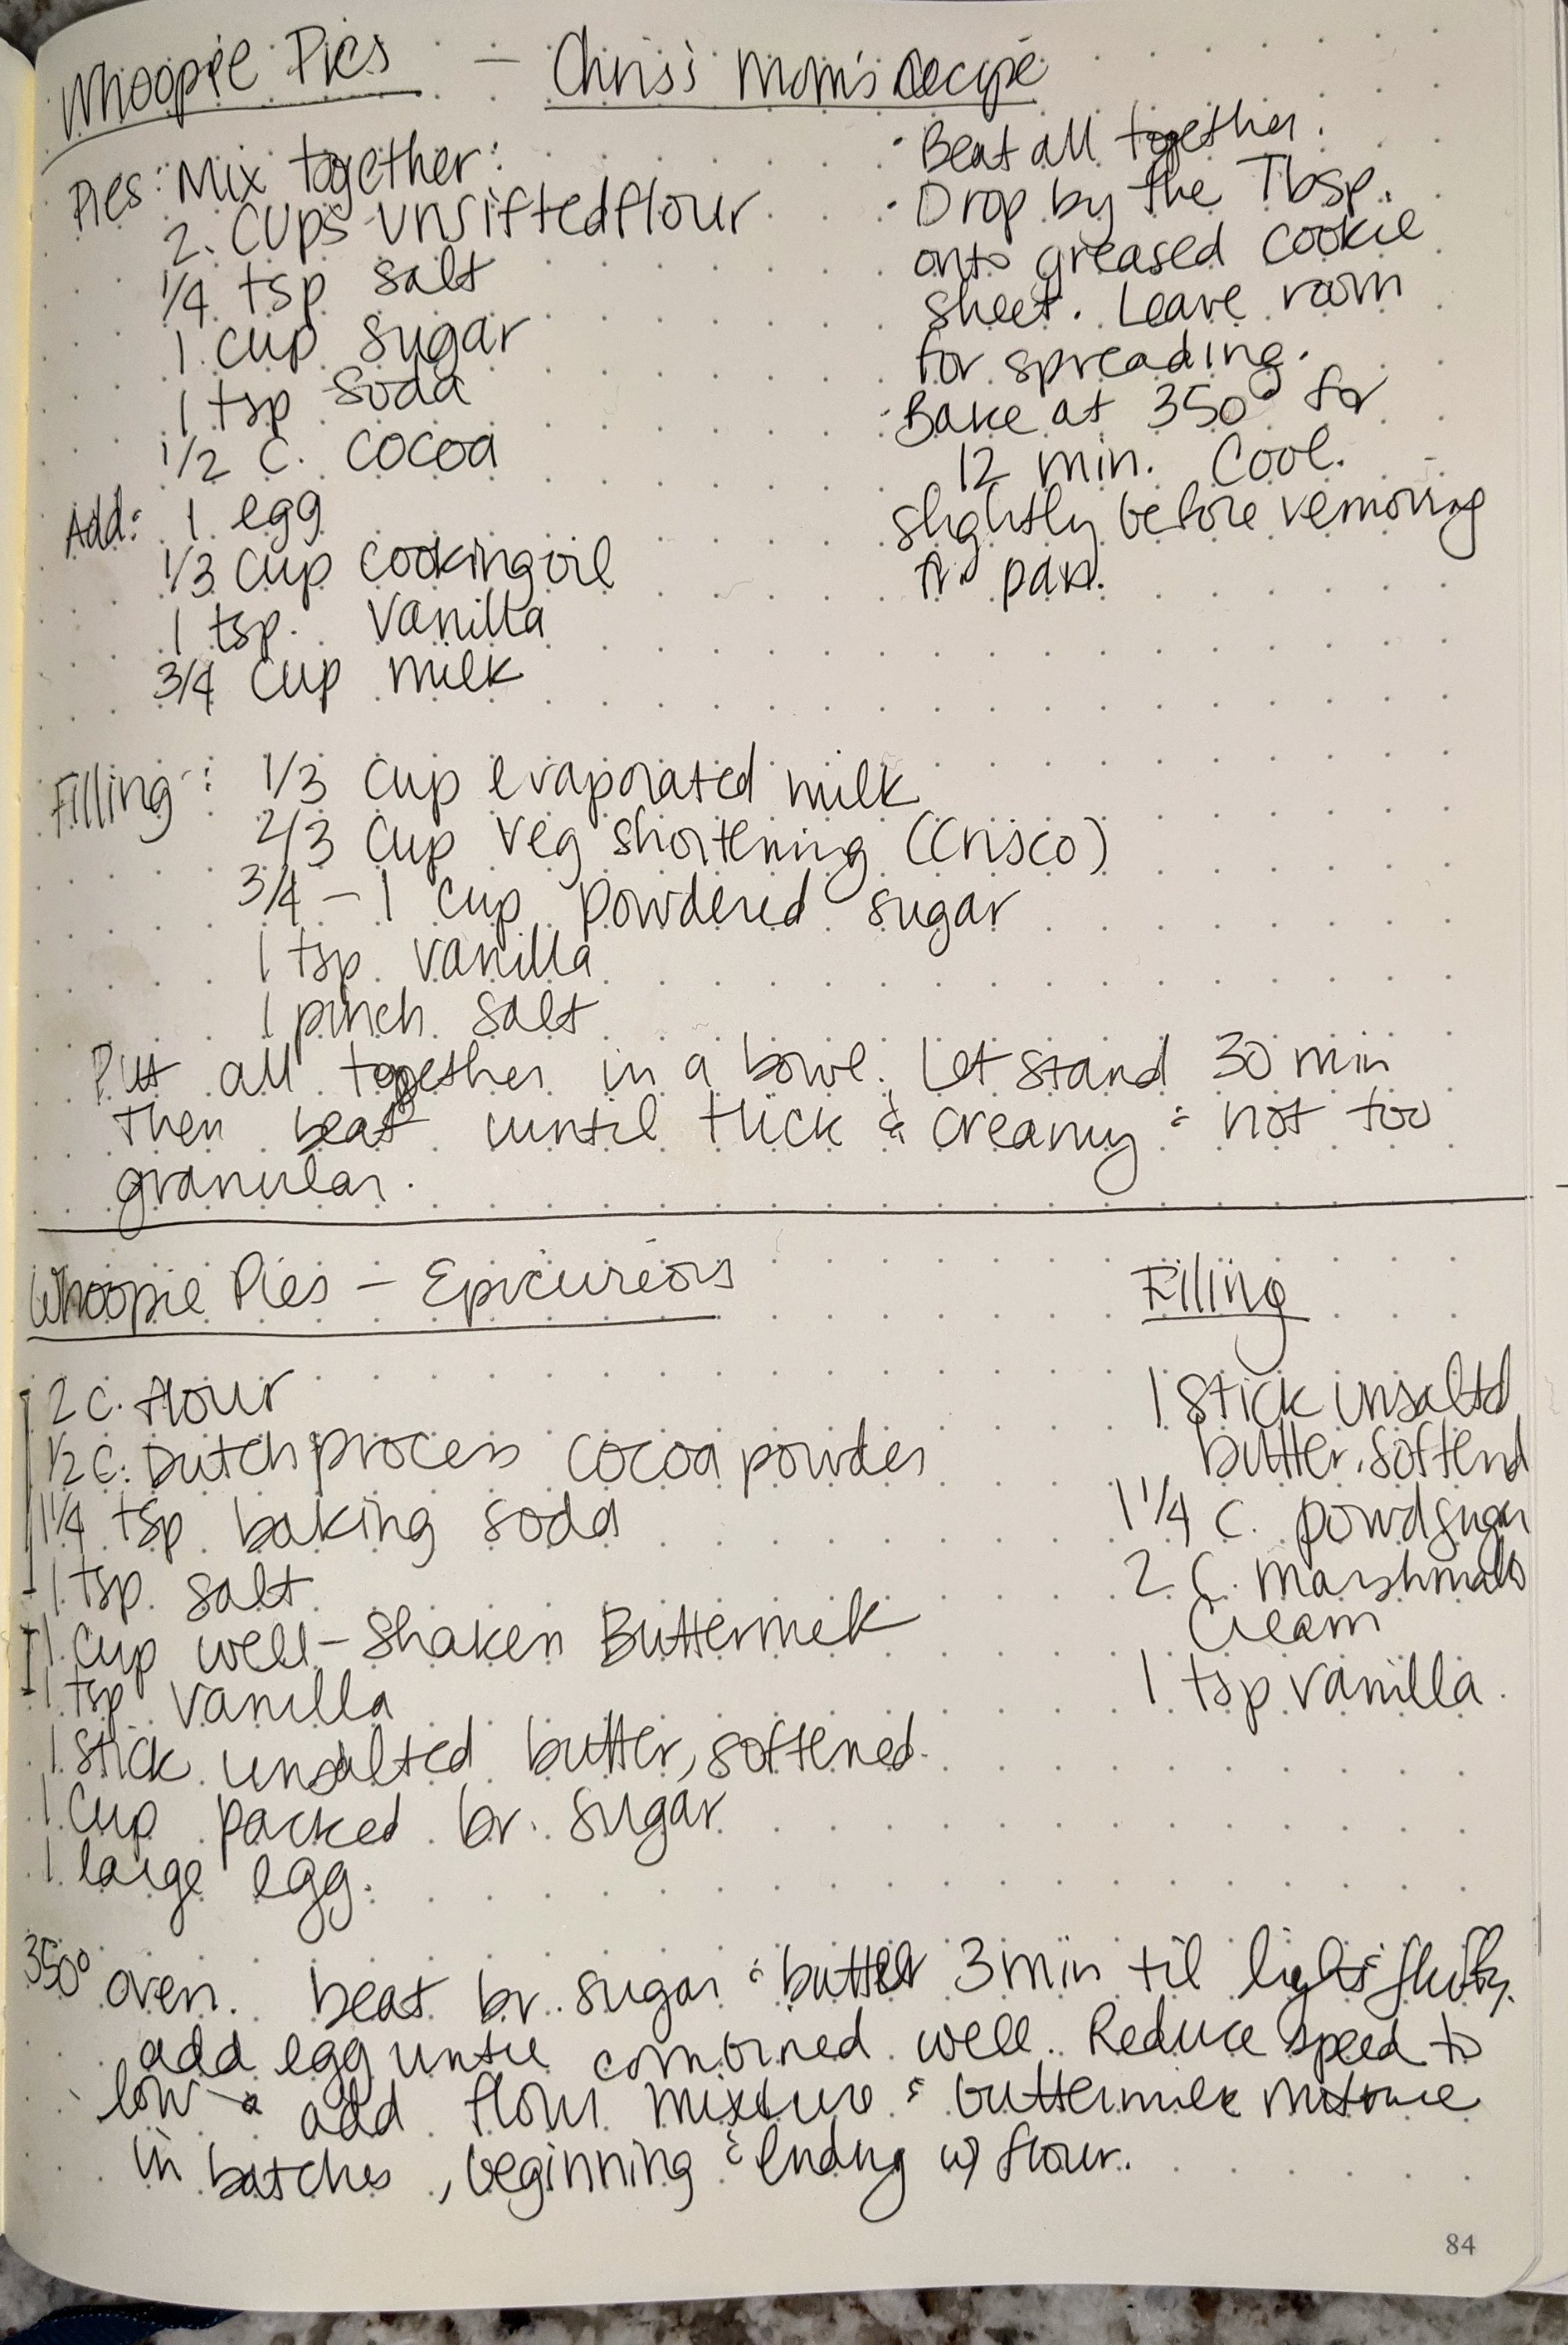 Whoopie Pies — Chris's Mom's Recipe
Pies: Mix together:
2 cups unsifted flour
1/4 tsp salt
1 cup sugar
1 tsp soda
1/2 c. cocoa
Add: 1 egg
1/3 cup cooking oil
1 tsp. vanilla
3/4 cup milk
· Beat all together.
· Drop by the Tbsp.
onto greased cookie
sheet. Leave room
for spreading.
· Bake at 350° for
12 min. Cool.
slightly before removing
fr. pan.
Filling: 1/3 cup evaporated milk
2/3 cup veg shortening (Crisco)
3/4 – 1 cup powdered sugar
1 tsp. vanilla
1 pinch salt
Put all together in a bowl. Let stand 30 min
then beat until thick & creamy & not too
granular.
Whoopie Pies – Epicureous
2 c. flour
1/2 c. Dutch process cocoa powder
1 1/4 tsp baking soda
1 tsp. salt
1 cup well-shaken Buttermilk
1 tsp vanilla
1 stick unsalted butter, softened
1 cup packed br. sugar
1 large egg.
Filling
1 stick unsaltd
butter, softend
1 1/4 c. powd sugar
2 c. marshmallo
cream
1 tsp vanilla.
350° oven. beat br. sugar & butter 3 min til light & fluffy.
add egg until combined well. Reduce speed to
low & add flour mixture & buttermilk mixture
in batches, beginning & ending w/ flour.
84